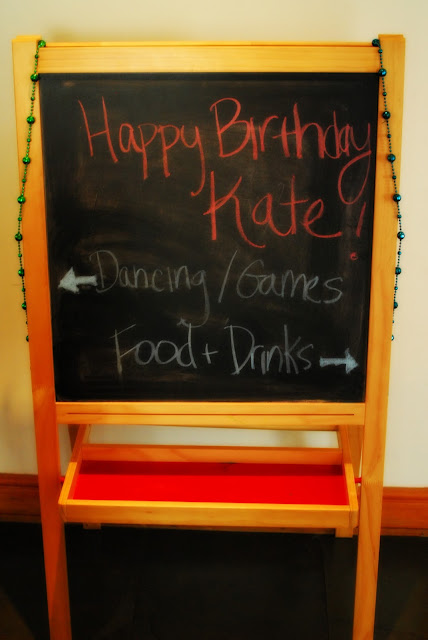 Happy Birthday
Kate!
← Dancing / Games
Food + Drinks →